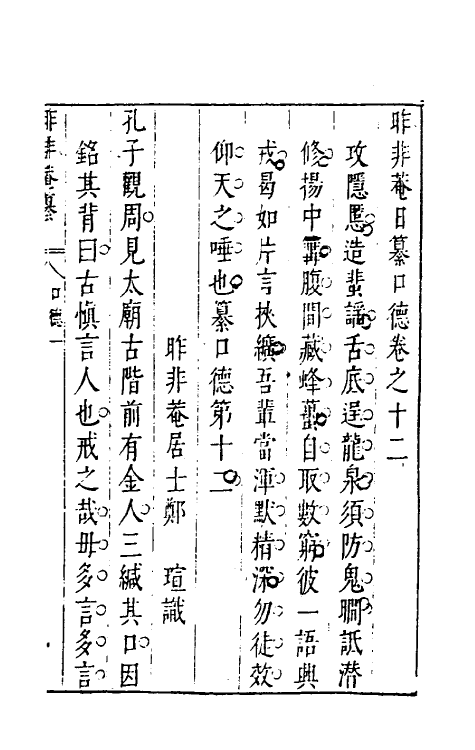 昨非菴日纂口德卷之十二
攻隱慝造蜚謠舌底逞龍泉須防鬼瞯詆潛
修揚中冓腹間藏蜂蠆自取數窮彼一語興
戎曷如片言挾纊吾輩當渾默精深勿徒效
仰天之唾也纂口德第十二
昨非菴居士鄭　瑄識
孔子觀周見太廟古階前有金人三緘其口因
銘其背曰古慎言人也戒之哉毋多言多言
昨非菴纂　八　口德一